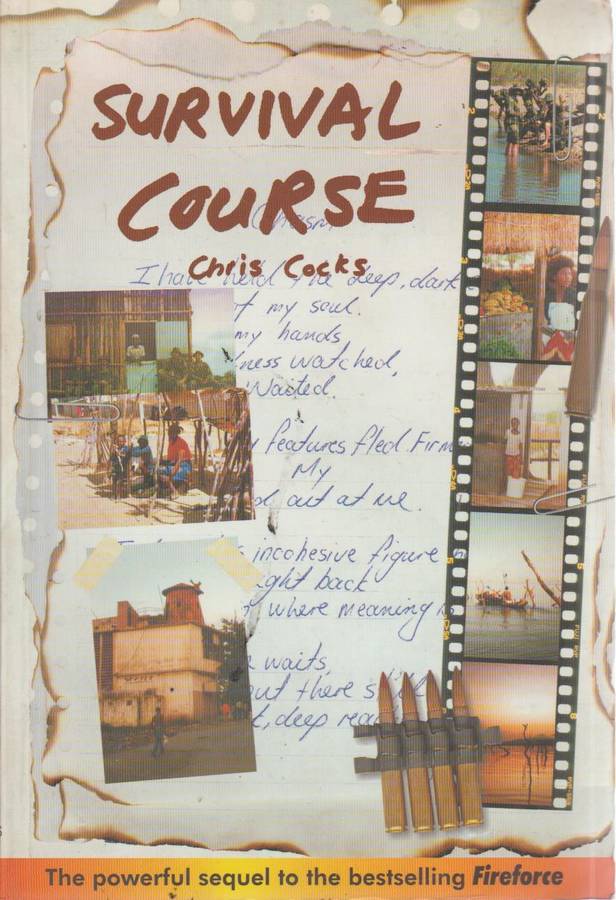 SURVIVAL
COURSE
Chasm
Chris Cocks
I have held the deep, dark
of my soul.
my hands
ness watched,
Waited.
features fled. Firm
My
out at me.
incohesive figure
ght back
where meaning is
waits,
but there still
t, deep
The powerful sequel to the bestselling Fireforce